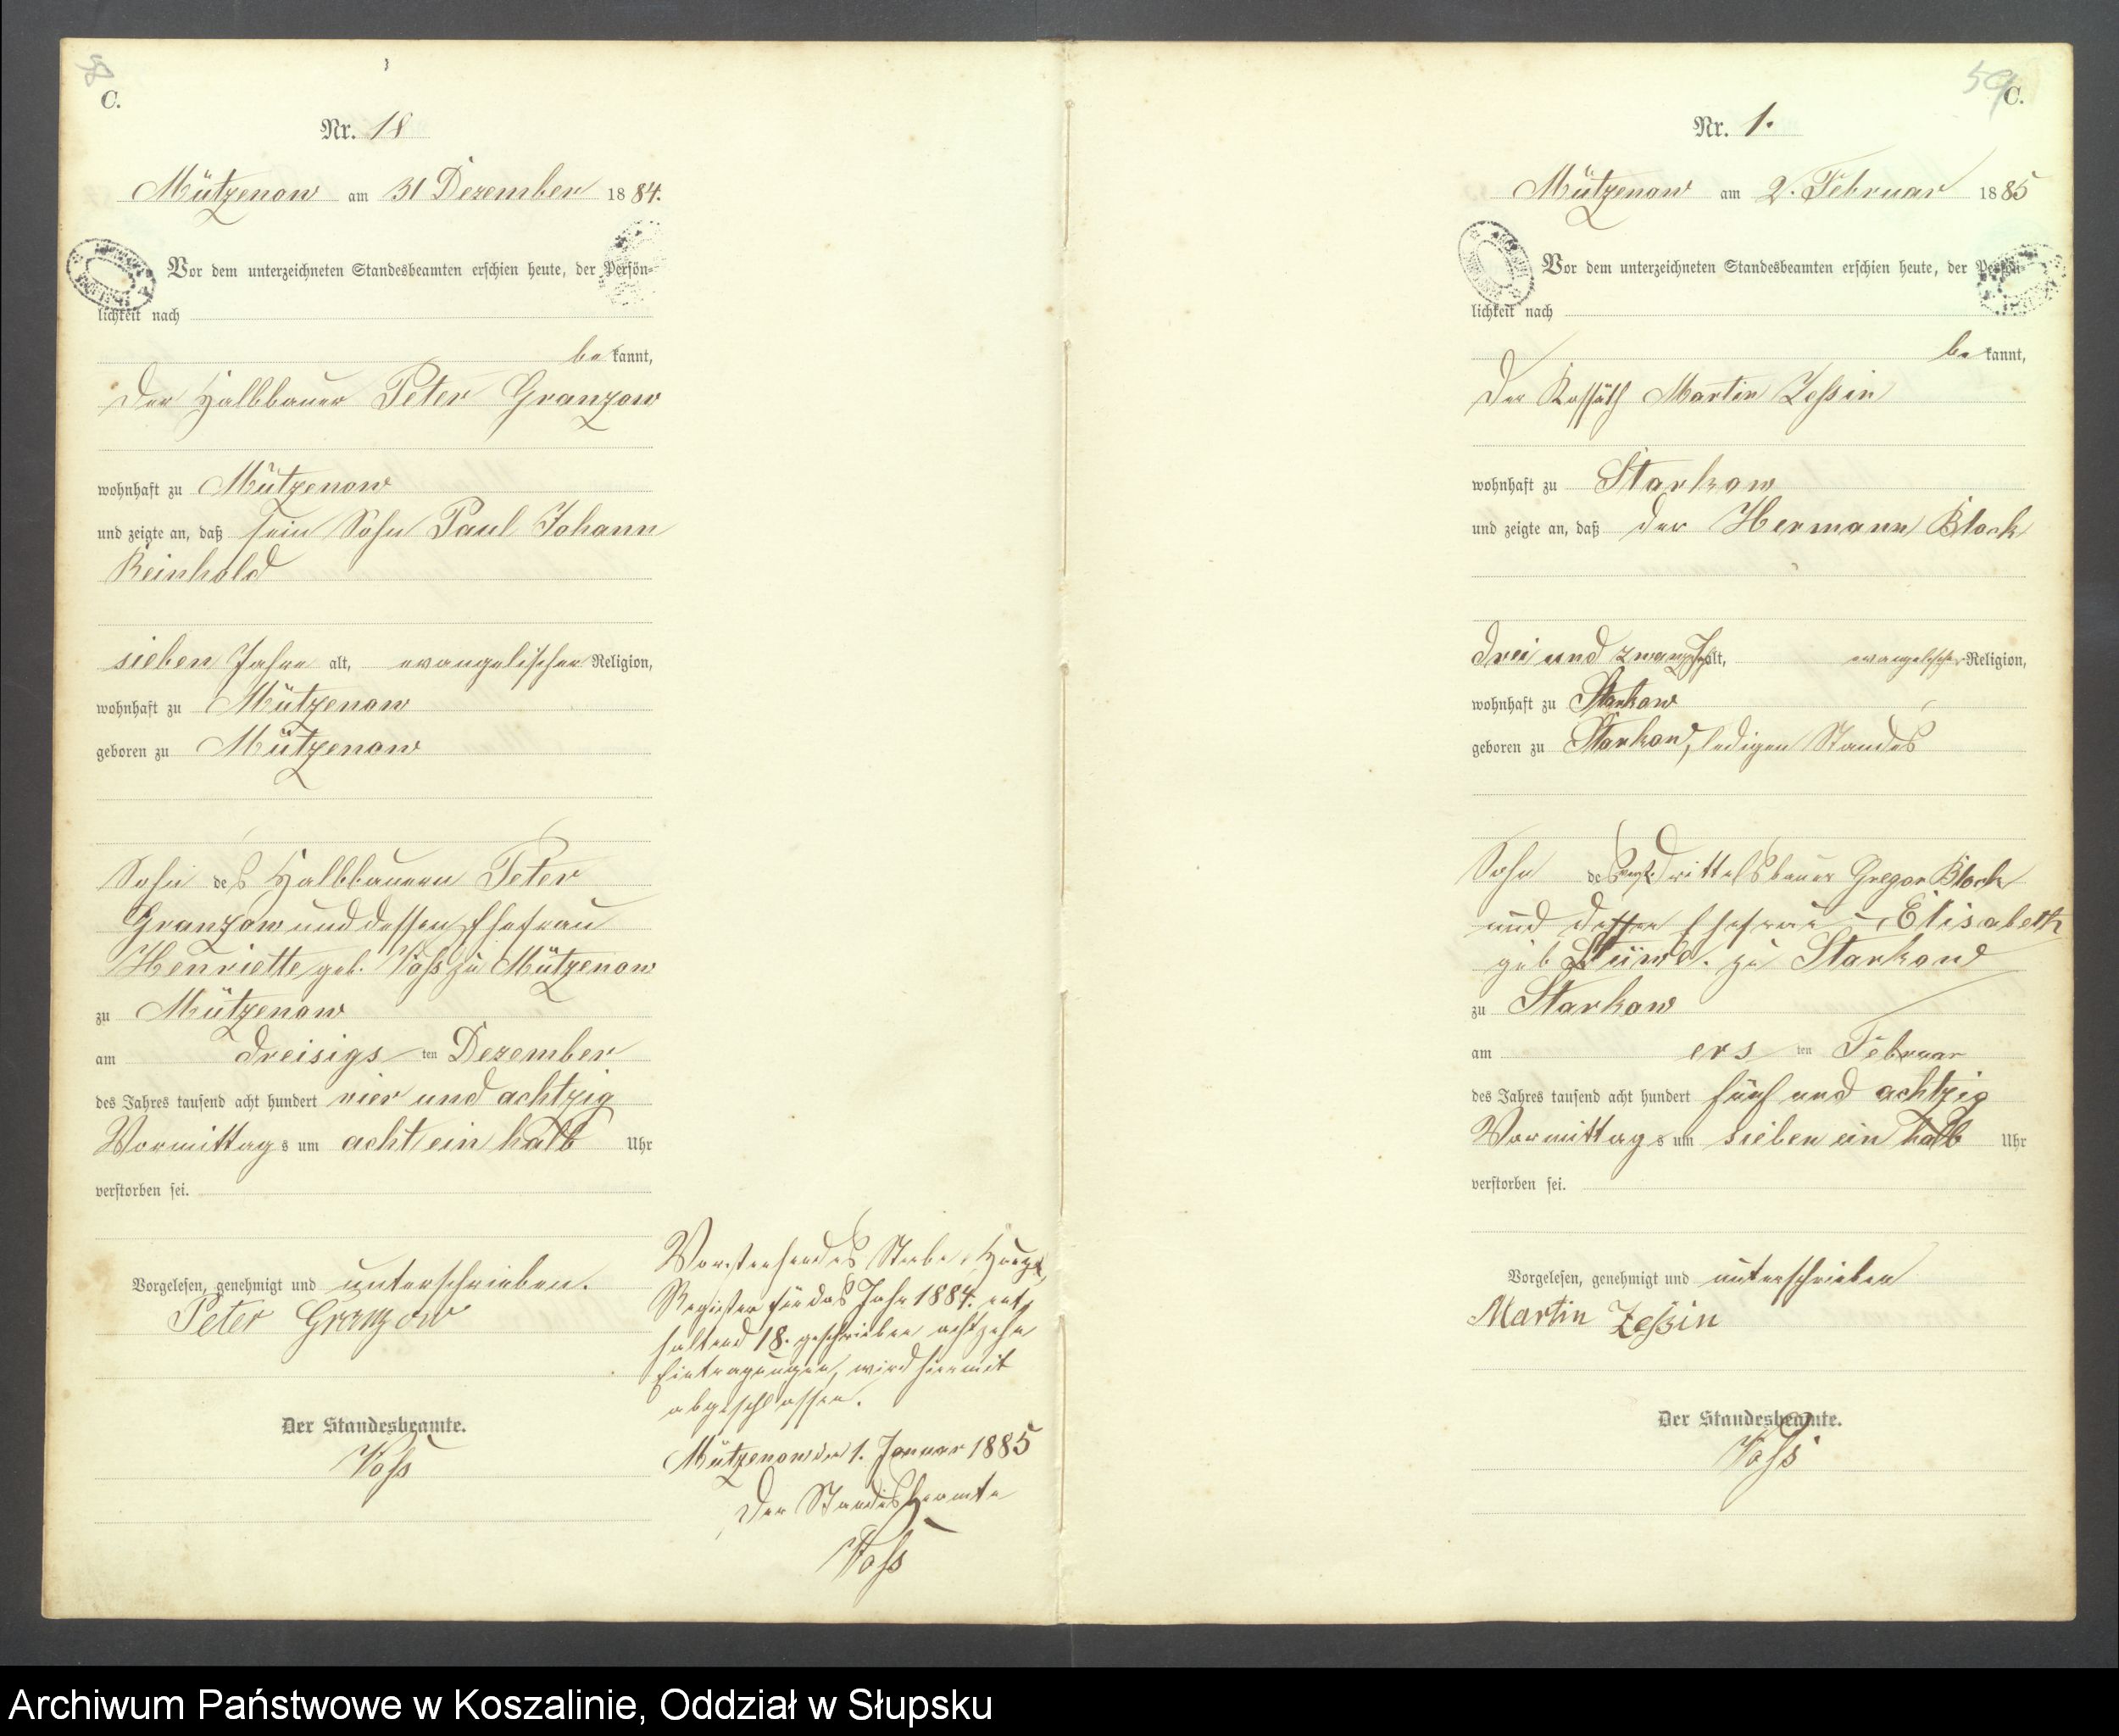 58
C.
Nr. 18
Mützenow am 31 Dezember 1884.
Vor dem unterzeichneten Standesbeamten erschien heute, der Persön-
lichkeit nach
be kannt,
der Halbbauer Peter Granzow
wohnhaft zu Mützenow
und zeigte an, daß sein Sohn Paul Johann
Reinhold
sieben Jahre alt, evangelischer Religion,
wohnhaft zu Mützenow
geboren zu Mützenow
Sohn des Halbbauern Peter
Granzow und dessen Ehefrau
Henriette geb. Voß zu Mützenow
zu Mützenow
am dreisigs ten Dezember
des Jahres tausend acht hundert vier und achtzig
Vormittag s um acht ein halb Uhr
verstorben sei.
Vorgelesen, genehmigt und unterschrieben.
Peter Granzow
Der Standesbeamte.
Voß
Vorstehendes Sterbe, Haupt,
Register für das Jahr 1884. ent,
haltend 18. geschrieben achtzehn
Eintragungen, wird hiermit
abgeschlossen.
Mützenow den 1. Januar 1885
Der Standesbeamte
Voß
59
C.
Nr. 1.
Mützenow am 2. Februar 1885
Vor dem unterzeichneten Standesbeamten erschien heute, der Persön-
lichkeit nach
be kannt,
der Kossäth Martin Zeßin
wohnhaft zu Starkow
und zeigte an, daß der Hermann Block
drei und zwanzig alt, evangelischer Religion,
wohnhaft zu Starkow
geboren zu Starkow, ledigen Standes
Sohn des Drittelsbauer Gregor Block
und dessen Ehefrau Elisabeth
geb zu Starkow
zu Starkow
am ers ten Februar
des Jahres tausend acht hundert fünf und achtzig
Vormittag s um sieben ein halb Uhr
verstorben sei.
Vorgelesen, genehmigt und unterschrieben
Martin Zeßin
Der Standesbeamte.
Voß
Archiwum Państwowe w Koszalinie, Oddział w Słupsku